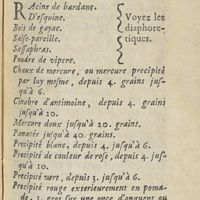 Racine de bardane.
D'esquine.
Bois de gayac.
Salse-pareille.
Sassaphras.
Poudre de vipere.
Voyez les
diaphore-
tiques.
Chaux de mercure, ou mercure precipité
par luy mesme, depuis 4. grains jus-
qu'à 6.
Cinabre d'antimoine, depuis 4. grains
jusqu'à 20.
Mercure doux jusqu'à 20. grains.
Panacée jusqu'à 40 grains.
Precipité blanc, depuis 4. jusqu'à 6.
Precipité de couleur de rose, depuis 4. jus-
qu'à 10.
Precipité vert, depuis 3. jusqu'à 6.
Precipité rouge exterieurement en poma-
de, 1. gros sur une once d'onguent ou